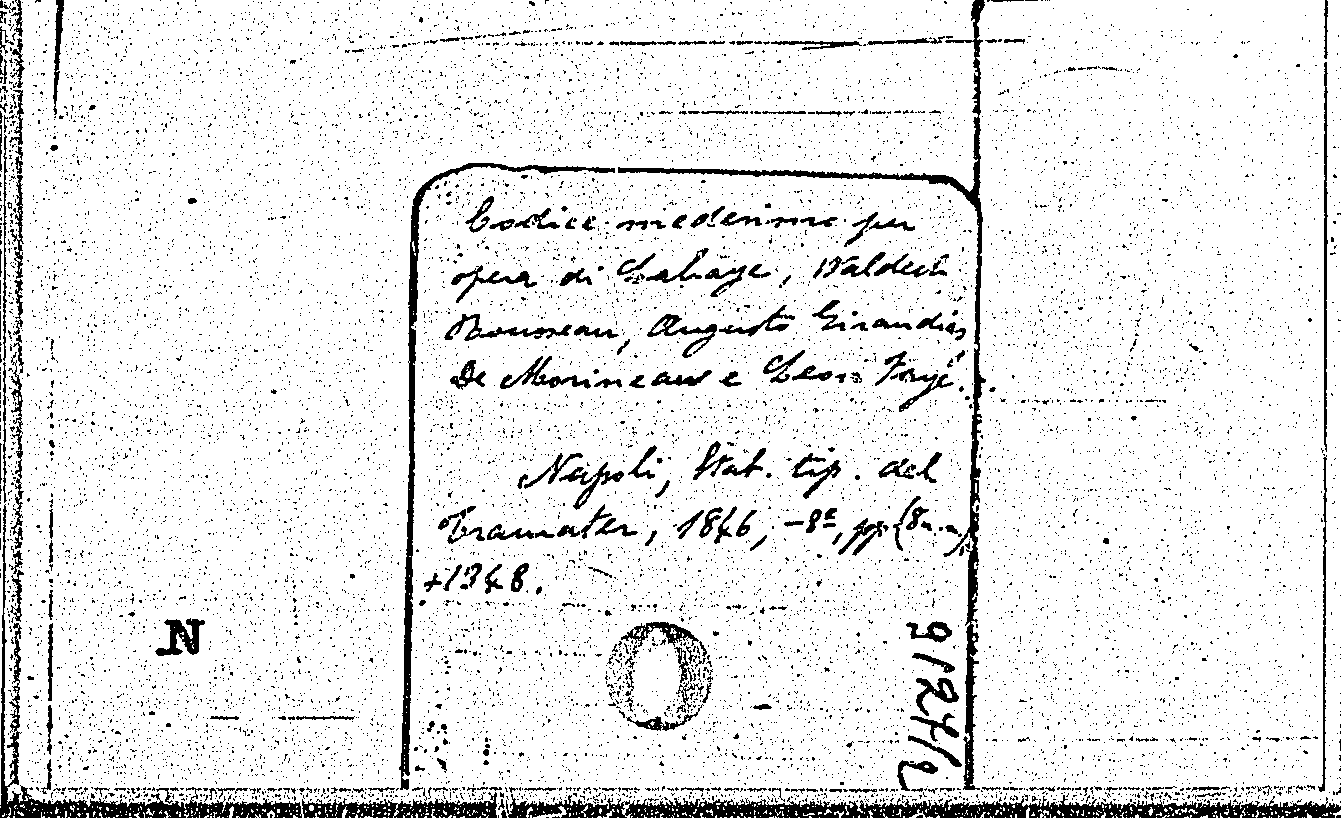 Codice medesimo per
opera di Lahaye, Waldeck
Rousseau, Augusto Giraudias,
De Morineau e Leon Fayé.
Napoli, Stab. tip. del
Tramater, 1846, -8º, pp. (8 n.n.)
+1348.
N